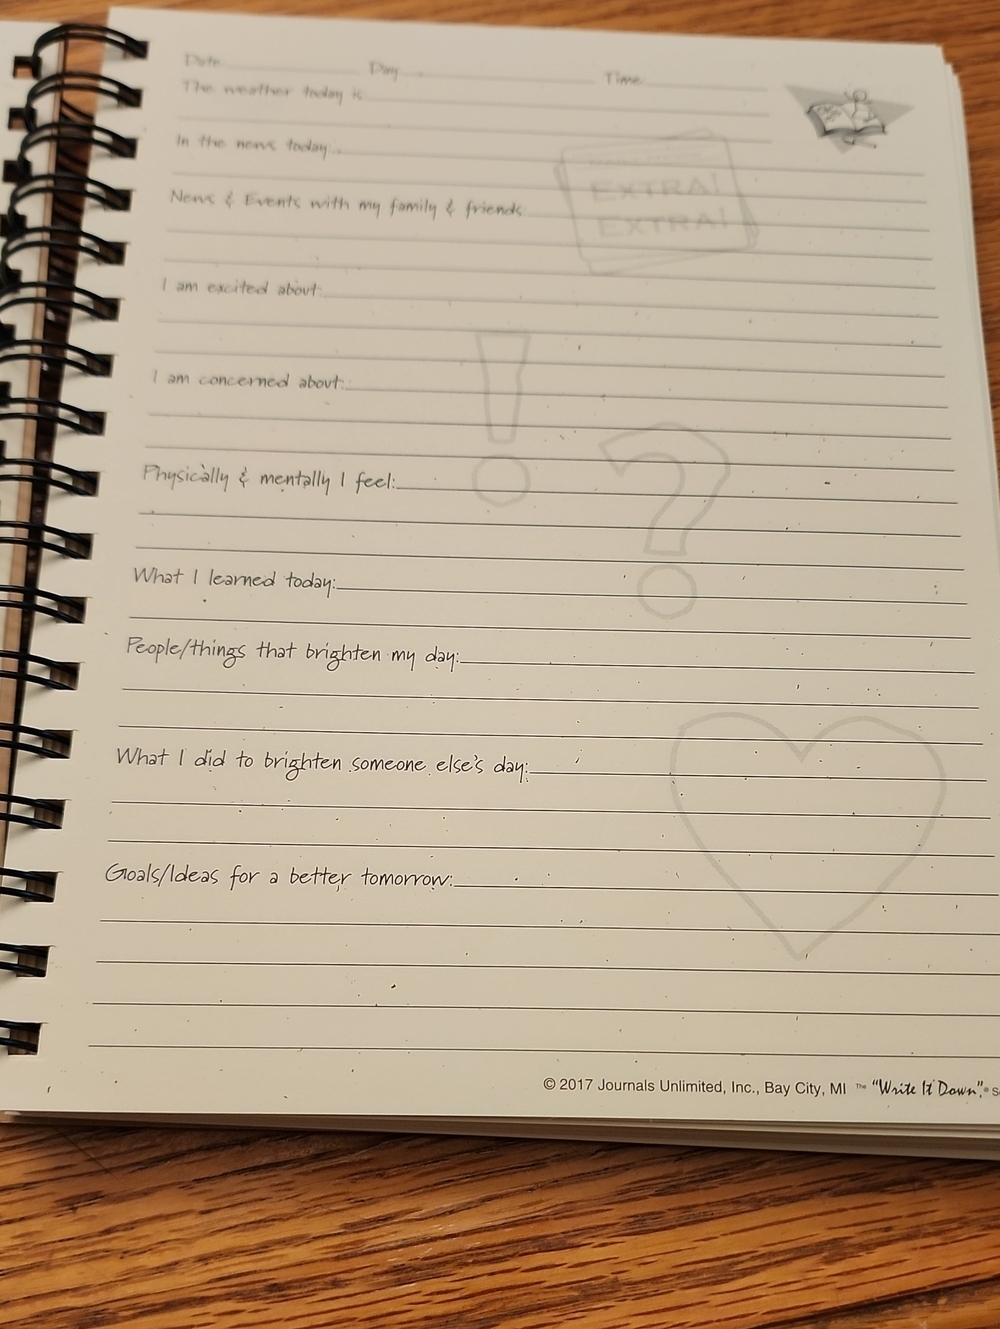 Date Day Time
The weather today is
In the news today:
EXTRA!
News & Events with my family & friends:
EXTRA!
I am excited about:
I am concerned about:
Physically & mentally I feel:
What I learned today:
People/things that brighten my day:
What I did to brighten someone else's day:
Goals/Ideas for a better tomorrow:
© 2017 Journals Unlimited, Inc., Bay City, MI ™ "Write It Down"®